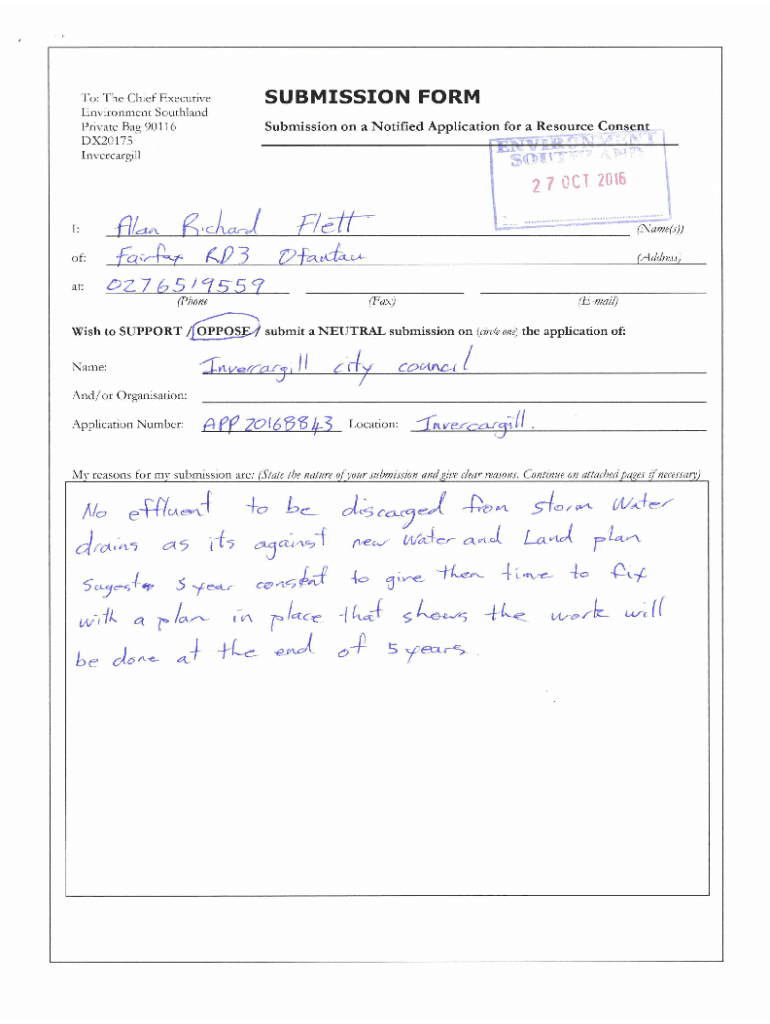 To: The Chief Executive
Environment Southland
Private Bag 90116
DX20175
Invercargill
SUBMISSION FORM
Submission on a Notified Application for a Resource Consent
ENVIRONMENT
SOUTHLAND
27 OCT 2016
I: Alan Richard Flett (Name(s))
of: Fairfax RD3 Otautau (Address)
at: 0276519559
(Phone (Fax) (E-mail)
Wish to SUPPORT / OPPOSE / submit a NEUTRAL submission on (circle one) the application of:
Name: Invercargill city council
And/or Organisation:
Application Number: APP 20168843 Location: Invercargill.
My reasons for my submission are: (State the nature of your submission and give clear reasons. Continue on attached pages if necessary)
No effluent to be discarged from storm Water
drains as its against new Water and Land plan
Sugest 5 year consent to give then time to fix
with a plan in place that shows the work will
be done at the end of 5 years.